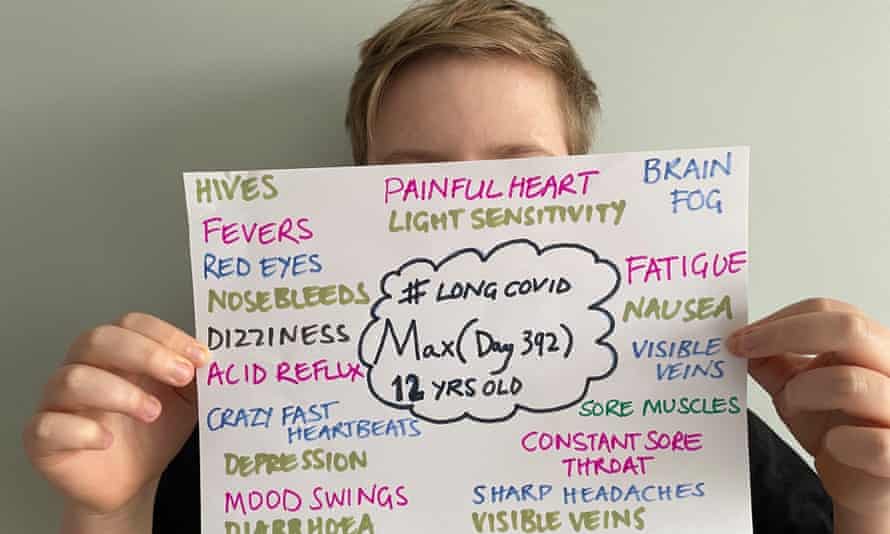 HIVES
PAINFUL HEART
BRAIN
FOG
LIGHT SENSITIVITY
FEVERS
RED EYES
NOSEBLEEDS
DIZZINESS
ACID REFLUX
CRAZY FAST
HEARTBEATS
DEPRESSION
MOOD SWINGS
DIARRHOEA
# LONG COVID
Max (Day 392)
12 YRS OLD
FATIGUE
NAUSEA
VISIBLE
VEINS
SORE MUSCLES
CONSTANT SORE
THROAT
SHARP HEADACHES
VISIBLE VEINS